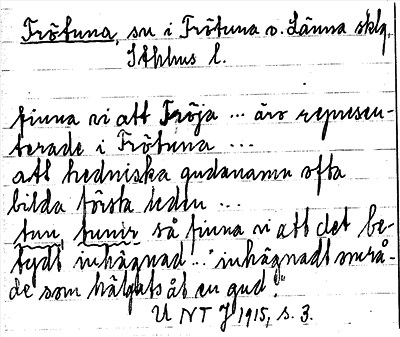 Frötuna, sn i Frötuna o. Länna sklg,
Sthlms l.
finna vi att Fröja ... äro represen-
terade i Frötuna ...
att hedniska gudanamn ofta
bilda första leden ...
tun, tunir så finna vi att det be-
tydt inhägnad ... "inhägnadt områ-
de som hälgats åt en gud."
UNT J 1915, s. 3.